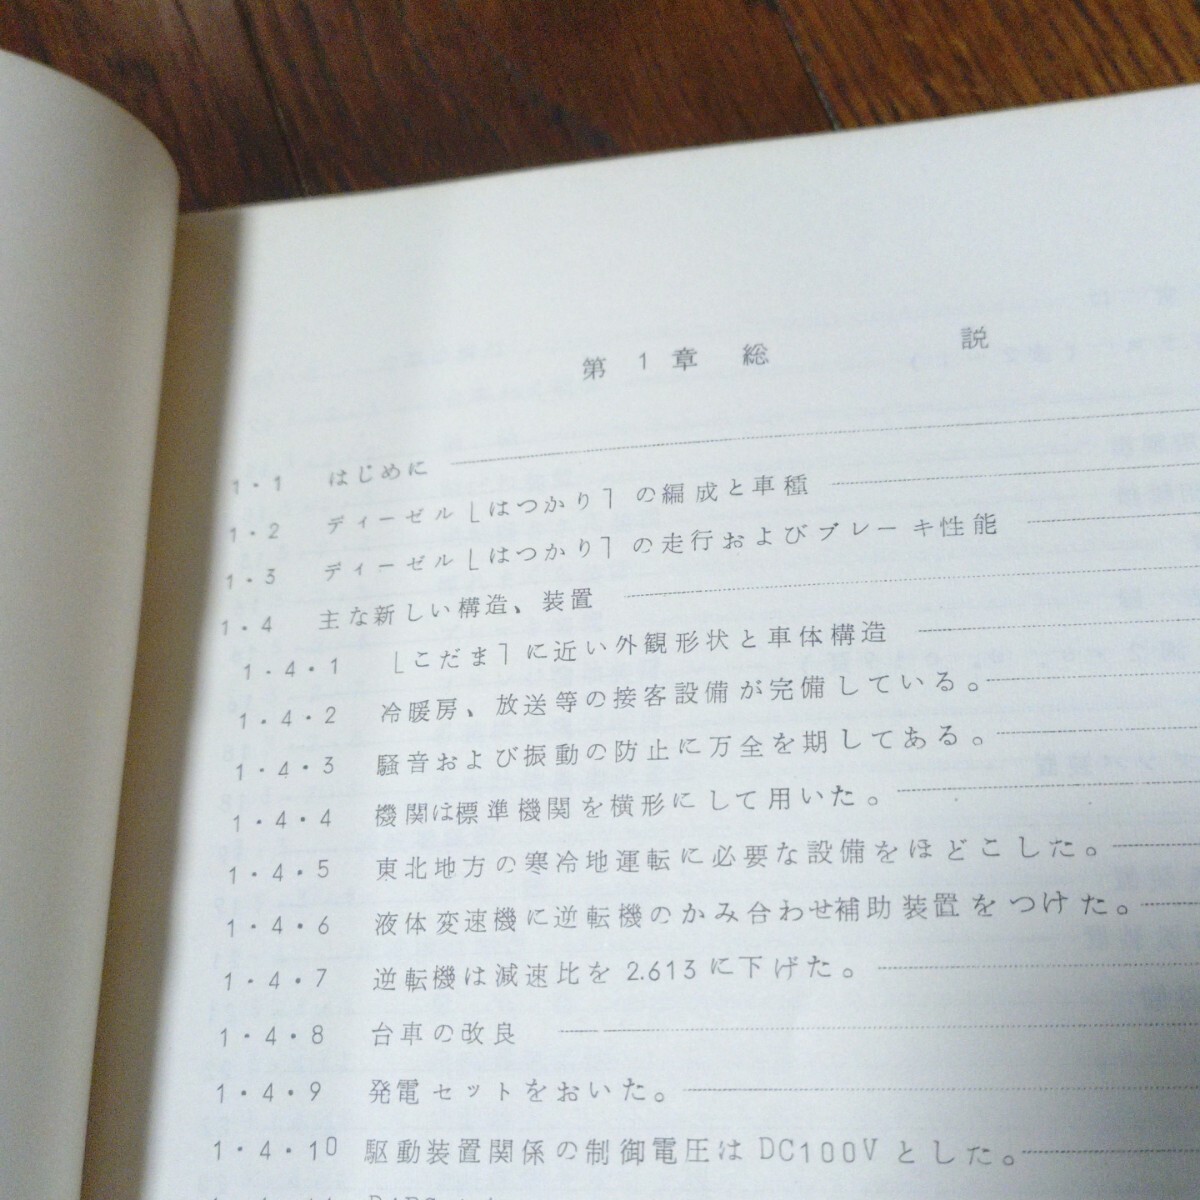 第1章 総 説
1・1 はじめに
1・2 ディーゼル「はつかり」の編成と車種
1・3 ディーゼル「はつかり」の走行およびブレーキ性能
1・4 主な新しい構造、装置
1・4・1 「こだま」に近い外観形状と車体構造
1・4・2 冷暖房、放送等の接客設備が完備している。
1・4・3 騒音および振動の防止に万全を期してある。
1・4・4 機関は標準機関を横形にして用いた。
1・4・5 東北地方の寒冷地運転に必要な設備をほどこした。
1・4・6 液体変速機に逆転機のかみ合わせ補助装置をつけた。
1・4・7 逆転機は減速比を2.613に下げた。
1・4・8 台車の改良
1・4・9 発電セットをおいた。
1・4・10 駆動装置関係の制御電圧はDC100Vとした。